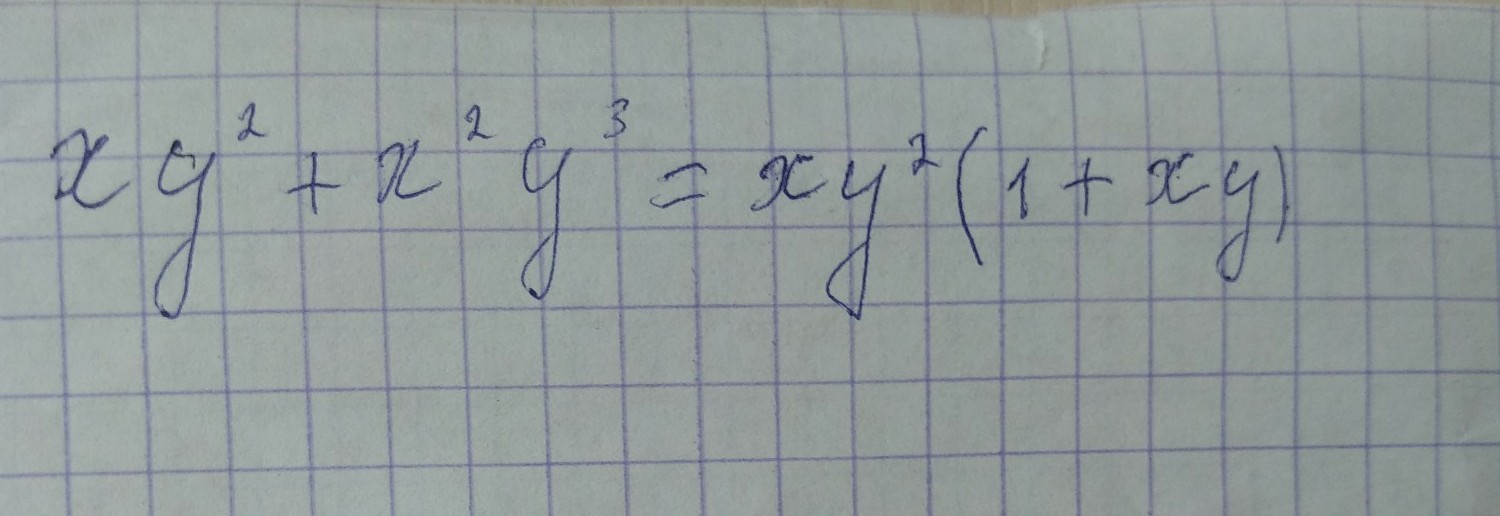 xy² + x²y³ = xy²(1 + xy)